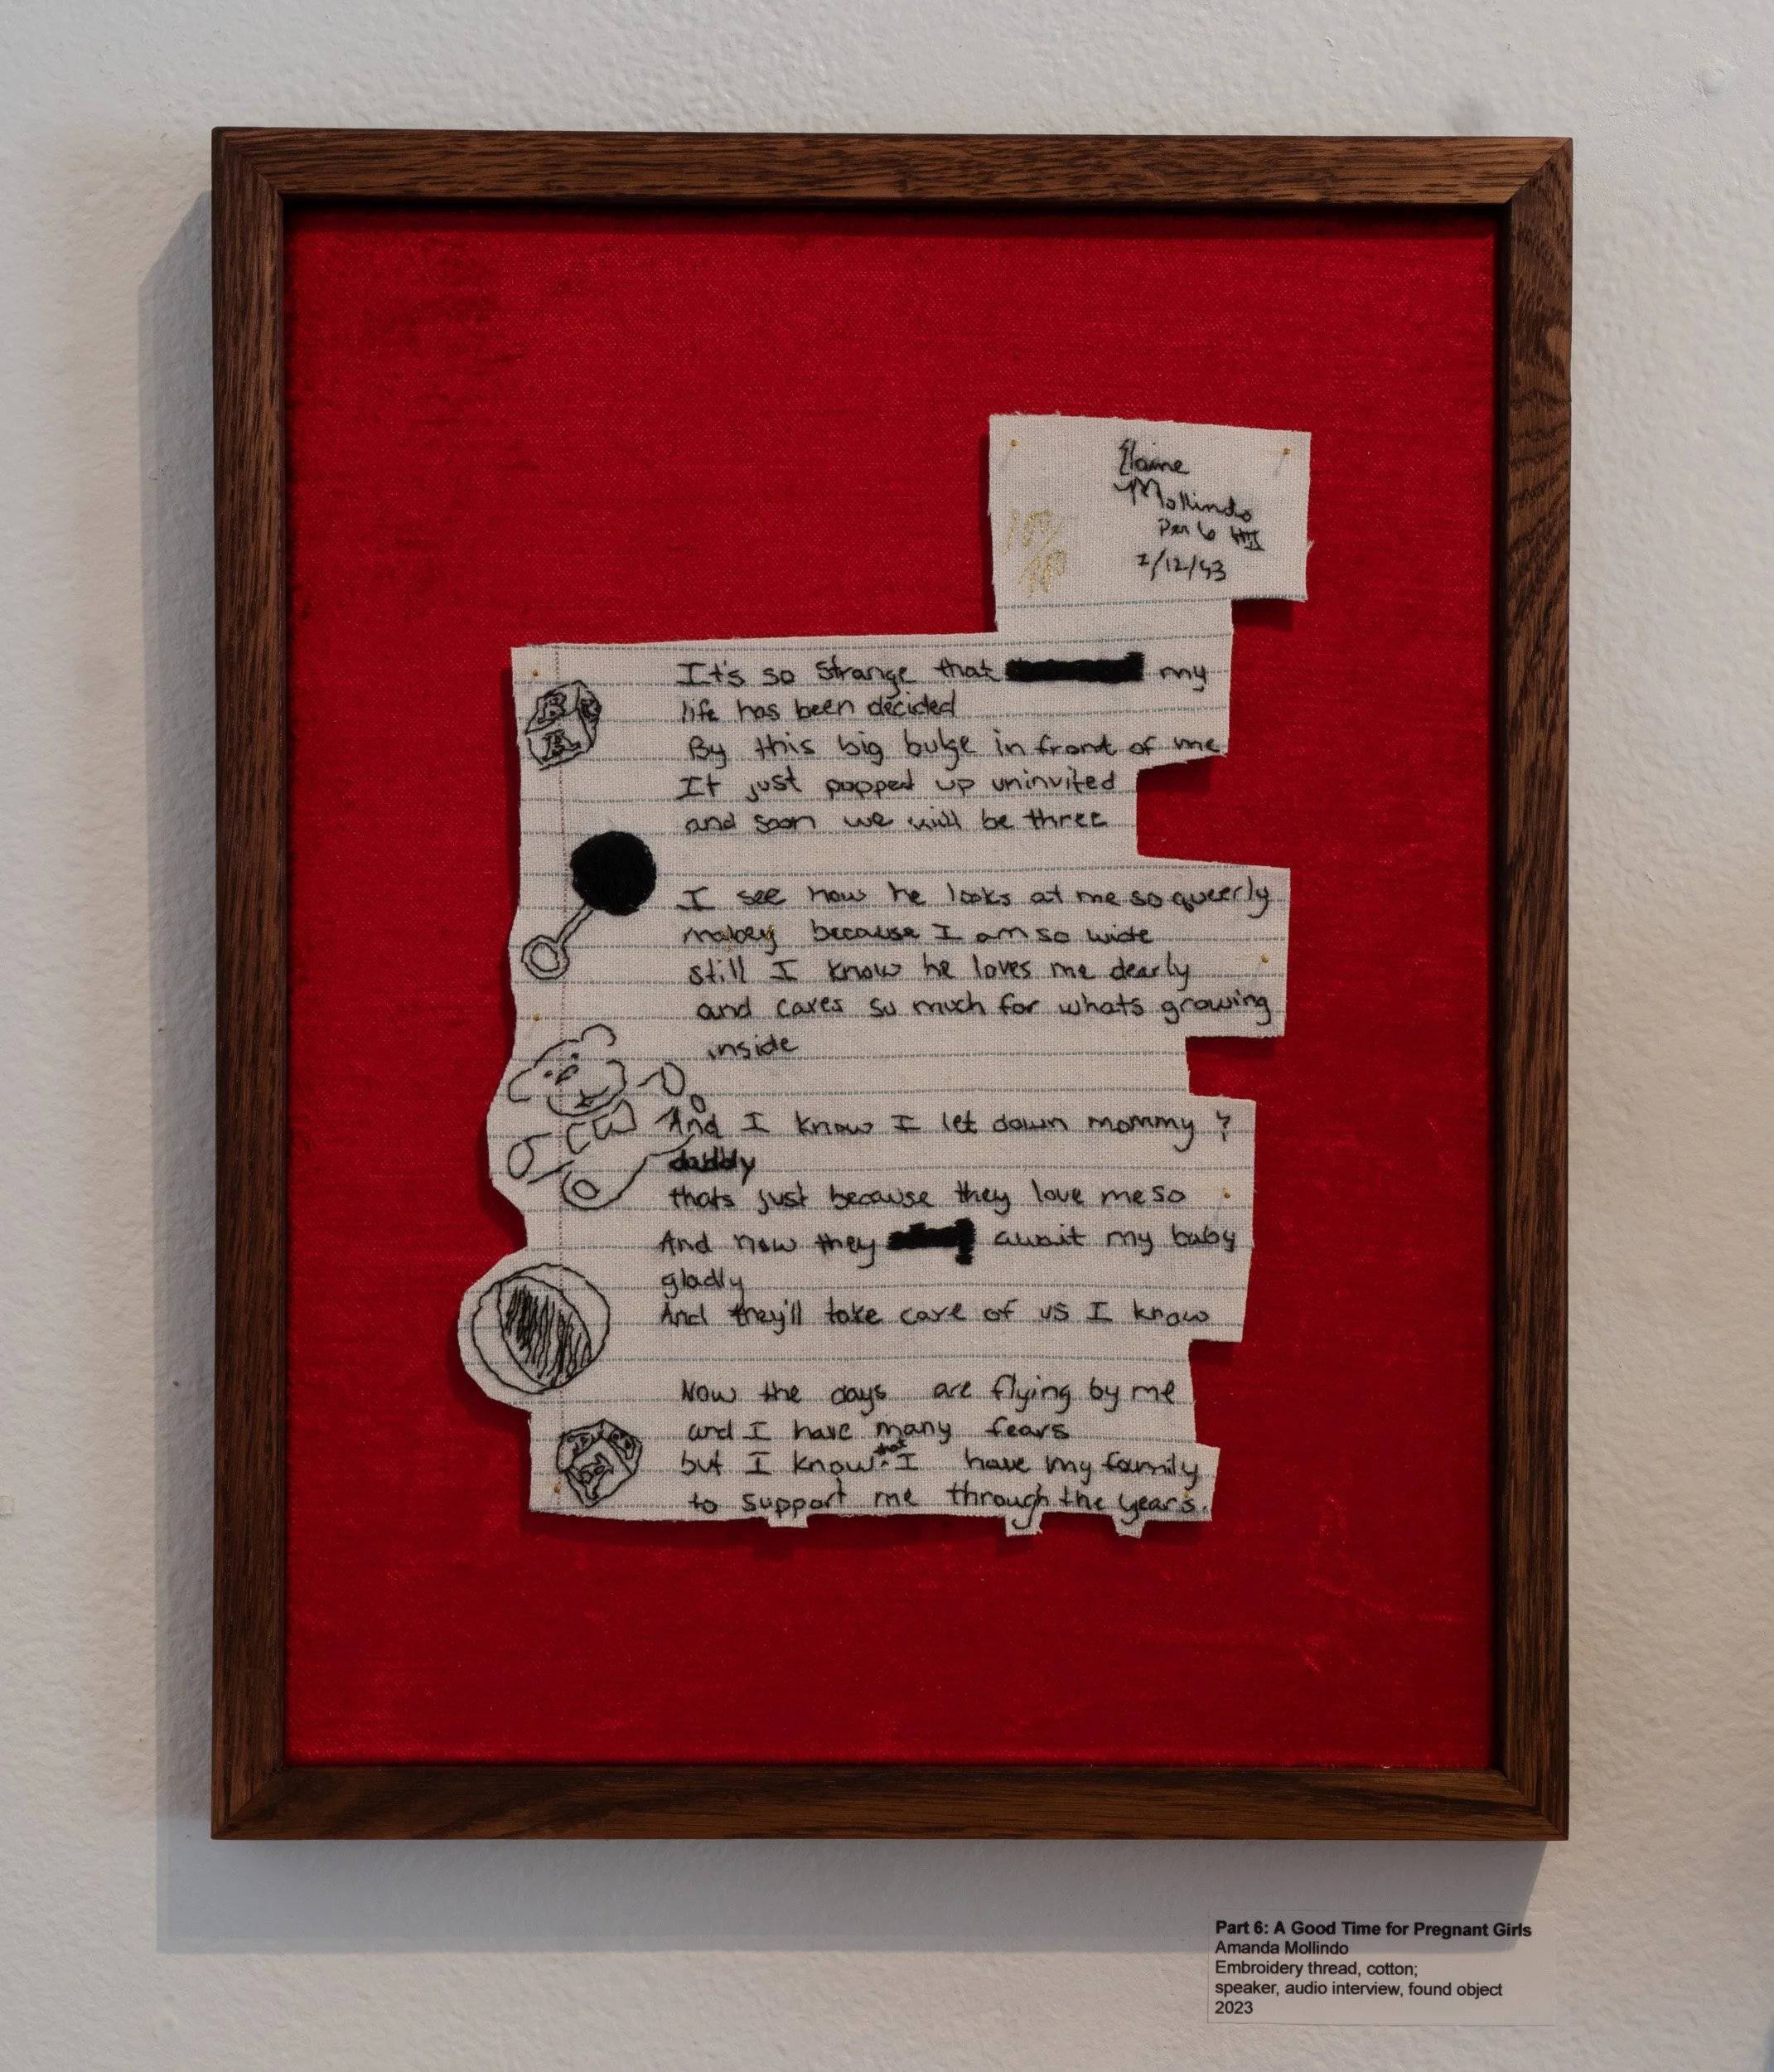 Elaine
Mollindo
Per 6
1/12/93
100/
It's so strange that my
life has been decided
By this big bulge in front of me
It just popped up uninvited
and soon we will be three
I see how he looks at me so queerly
mabey because I am so wide
still I know he loves me dearly
and cares so much for whats growing
inside
And I know I let down mommy &
daddy
thats just because they love me so
And now they await my baby
gladly
And they'll take care of us I know
Now the days are flying by me
and I have many fears
but I know that I have my family
to support me through the years.
B
A
Part 6: A Good Time for Pregnant Girls
Amanda Mollindo
Embroidery thread, cotton;
speaker, audio interview, found object
2023